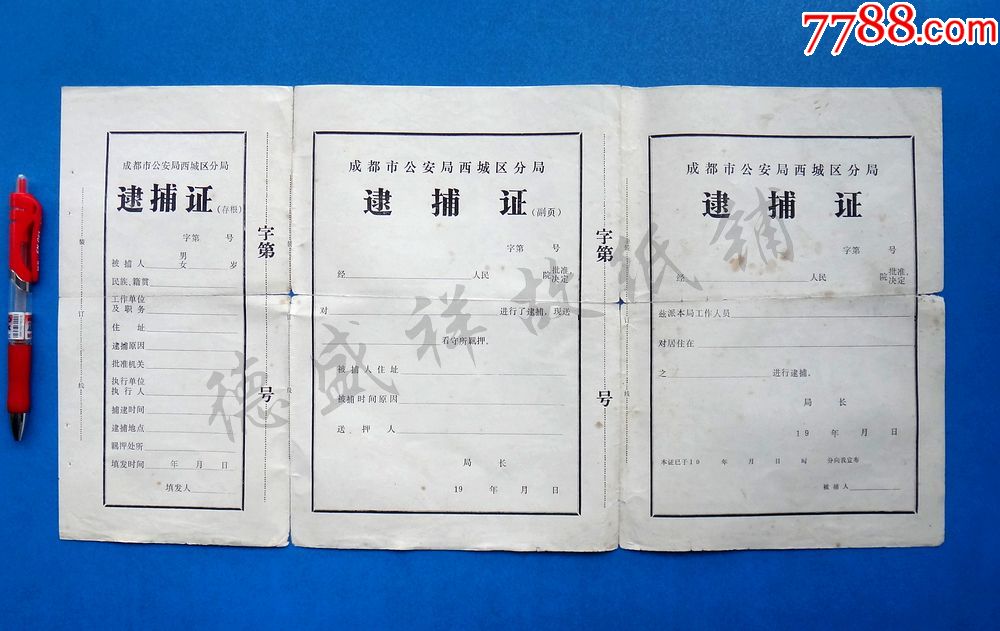 7788.com
成都市公安局西城区分局
逮捕证(存根)
字第 号
被捕人 男女 岁
民族、籍贯
工作单位及职务
住址
逮捕原因
批准机关
执行单位
执行人
捕逮时间
逮捕地点
羁押处所
填发时间 年 月 日
填发人
装
订
线
字第
号
成都市公安局西城区分局
逮捕证(副页)
字第 号
经 人民 院批准、决定
对 进行了逮捕，现送
看守所羁押。
被捕人住址
被捕时间原因
送押人
局长
19 年 月 日
字第
号
装
订
线
成都市公安局西城区分局
逮捕证
字第 号
经 人民 院批准、决定
兹派本局工作人员
对居住在
之 进行逮捕。
局长
19 年 月 日
本证已于19 年 月 日 时 分向我宣布
被捕人
德盛祥故纸铺